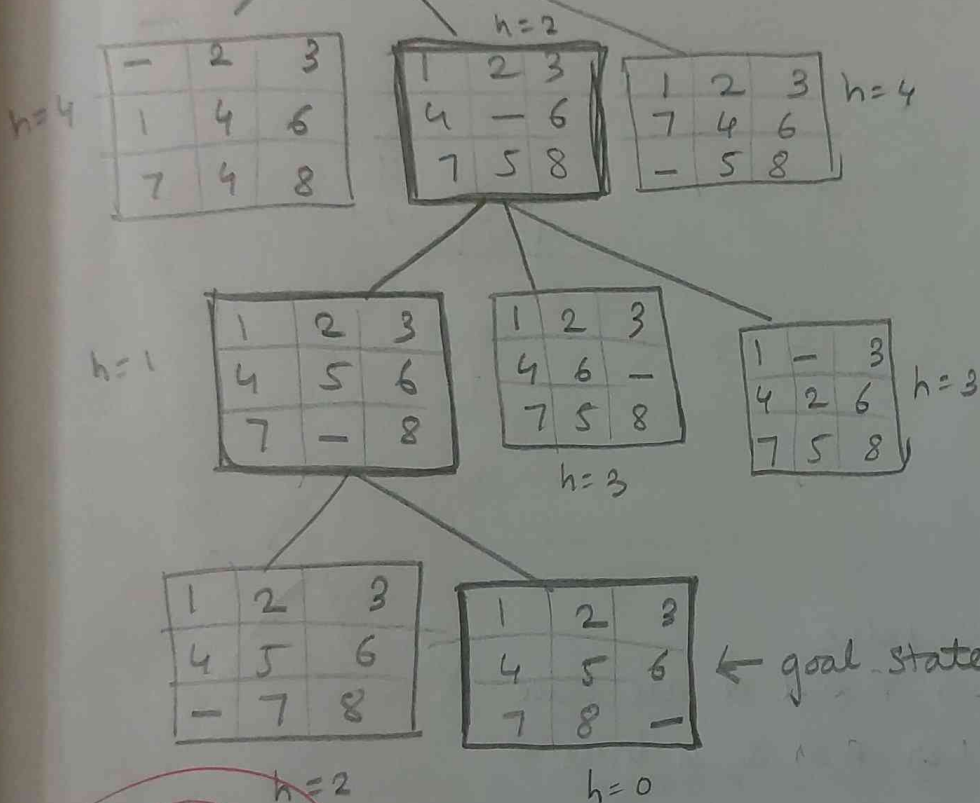 h=2
- 2 3
1 4 6
7 4 8
h=4
1 2 3
4 - 6
7 5 8
1 2 3
7 4 6
- 5 8
h=4
h=1
1 2 3
4 5 6
7 - 8
1 2 3
4 6 -
7 5 8
h=3
1 - 3
4 2 6
7 5 8
h=3
1 2 3
4 5 6
- 7 8
h=2
1 2 3
4 5 6
7 8 -
h=0
← goal state